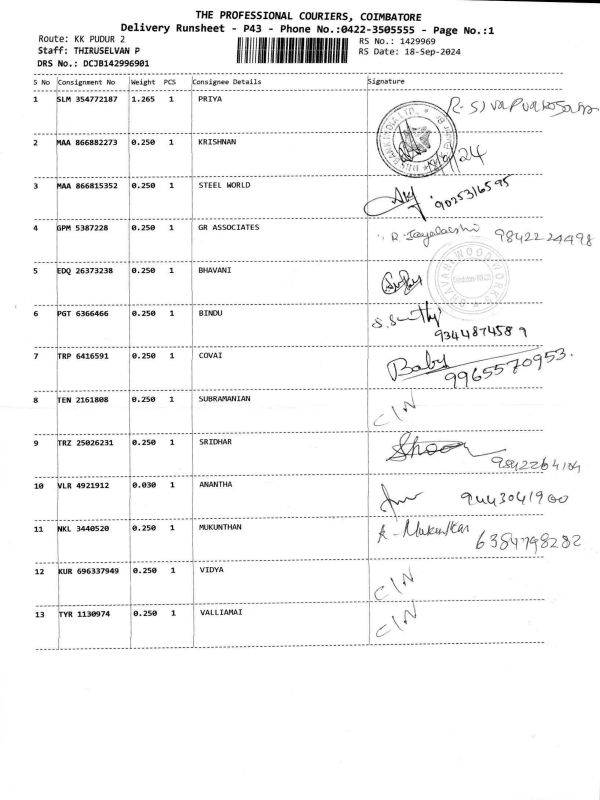 THE PROFESSIONAL COURIERS, COIMBATORE
Delivery Runsheet - P43 - Phone No.:0422-3505555 - Page No.:1
Route: KK PUDUR 2 RS No.: 1429969
Staff: THIRUSELVAN P RS Date: 18-Sep-2024
DRS No.: DCJB142996901
S No Consignment No Weight PCS Consignee Details Signature
1 SLM 354772187 1.265 1 PRIYA
2 MAA 866882273 0.250 1 KRISHNAN
3 MAA 866815352 0.250 1 STEEL WORLD 9025316595
4 GPM 5387228 0.250 1 GR ASSOCIATES R. Jayalacshi 9842224498
5 EDQ 26373238 0.250 1 BHAVANI BHAVANI WOOD WORKS
6 PGT 6366466 0.250 1 BINDU
9344874589
7 TRP 6416591 0.250 1 COVAI Baby
9965570953.
8 TEN 2161808 0.250 1 SUBRAMANIAN C/N
9 TRZ 25026231 0.250 1 SRIDHAR
9842264104
10 VLR 4921912 0.030 1 ANANTHA 9443041900
11 NKL 3440520 0.250 1 MUKUNTHAN 6384798282
12 KUR 696337949 0.250 1 VIDYA C/N
13 TYR 1130974 0.250 1 VALLIAMAI C/N